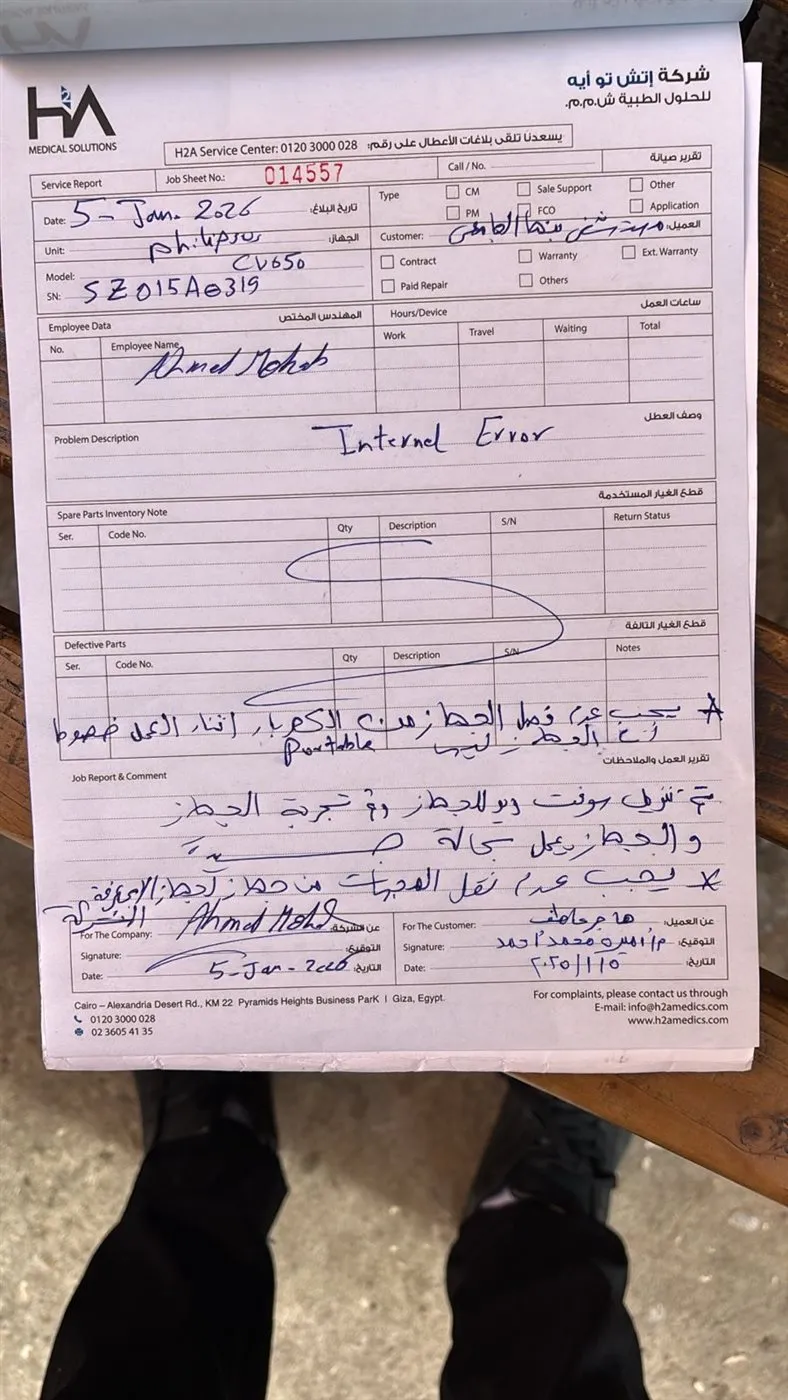 شركة إتش تو أيه
للحلول الطبية ش.م.م.
H2A
MEDICAL SOLUTIONS
H2A Service Center: 0120 3000 028 يسعدنا تلقى بلاغات الأعطال على رقم:
Service Report Job Sheet No.: 014557 Call / No. تقرير صيانة
Date: 5-Jan. 2026 تاريخ البلاغ:
Type CM Sale Support Other
PM FCO Application
Unit: الجهاز:
Customer: العميل:
Model: CV650
Contract Warranty Ext. Warranty
SN: SZ015A0319
Paid Repair Others
Employee Data المهندس المختص Hours/Device ساعات العمل
No. Employee Name Work Travel Waiting Total
Ahmed Mohab
Problem Description وصف العطل
Internal Error
قطع الغيار المستخدمة
Spare Parts Inventory Note
Ser. Code No. Qty Description S/N Return Status
قطع الغيار التالفة
Defective Parts
Ser. Code No. Qty Description S/N Notes
يجب عدم فصل الجهاز من الكهرباء اثناء العمل خصوصا
أن الجهاز ليس portable
Job Report & Comment تقرير العمل والملاحظات
تم تنزيل سوفت وير للجهاز وتم تجربة الجهاز
والجهاز يعمل بحالة جيدة
* يجب عدم نقل العينات من جهاز لجهاز
For The Company: Ahmed Mohab عن الشركة:
For The Customer: هاجر عاطف عن العميل:
Signature: التوقيع:
Signature: م/أميرة محمد أحمد التوقيع:
Date: 5-Jan-2026 التاريخ:
Date: ٢٠٢٥/١/٥ التاريخ:
Cairo – Alexandria Desert Rd., KM 22 Pyramids Heights Business Park | Giza, Egypt.
0120 3000 028
02 3605 41 35
For complaints, please contact us through
E-mail: info@h2amedics.com
www.h2amedics.com